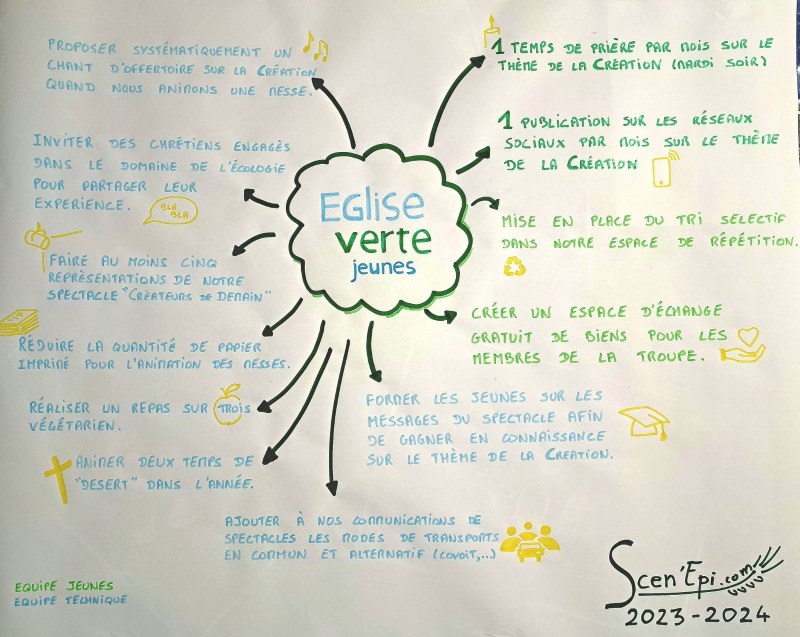 Eglise
verte
jeunes
PROPOSER SYSTÉMATIQUEMENT UN
CHANT D'OFFERTOIRE SUR LA CRÉATION
QUAND NOUS ANIMONS UNE MESSE.
INVITER DES CHRÉTIENS ENGAGÉS
DANS LE DOMAINE DE L'ÉCOLOGIE
POUR PARTAGER LEUR
EXPERIENCE.
BLA
BLA
FAIRE AU MOINS CINQ
REPRÉSENTATIONS DE NOTRE
SPECTACLE "CRÉATEURS DE DEMAIN"
RÉDUIRE LA QUANTITÉ DE PAPIER
IMPRIMÉ POUR L'ANIMATION DES MESSES.
RÉALISER UN REPAS SUR TROIS
VÉGÉTARIEN.
ANIMER DEUX TEMPS DE
"DESERT" DANS L'ANNÉE.
AJOUTER À NOS COMMUNICATIONS DE
SPECTACLES LES MODES DE TRANSPORTS
EN COMMUN ET ALTERNATIF (COVOIT,...)
1 TEMPS DE PRIÈRE PAR MOIS SUR LE
THÈME DE LA CRÉATION (MARDI SOIR)
1 PUBLICATION SUR LES RÉSEAUX
SOCIAUX PAR MOIS SUR LE THÈME
DE LA CRÉATION
MISE EN PLACE DU TRI SELECTIF
DANS NOTRE ESPACE DE RÉPÉTITION.
CRÉER UN ESPACE D'ÉCHANGE
GRATUIT DE BIENS POUR LES
MEMBRES DE LA TROUPE.
FORMER LES JEUNES SUR LES
MESSAGES DU SPECTACLE AFIN
DE GAGNER EN CONNAISSANCE
SUR LE THÈME DE LA CREATION.
EQUIPE JEUNES
EQUIPE TECHNIQUE
Scen'Epi.com
2023-2024